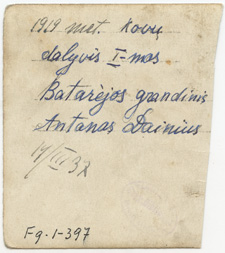 1919 met. kovų
dalyvis I-mos
Batarėjos grandinis
Antanas Dainius
14/III 37
Fg. 1-397